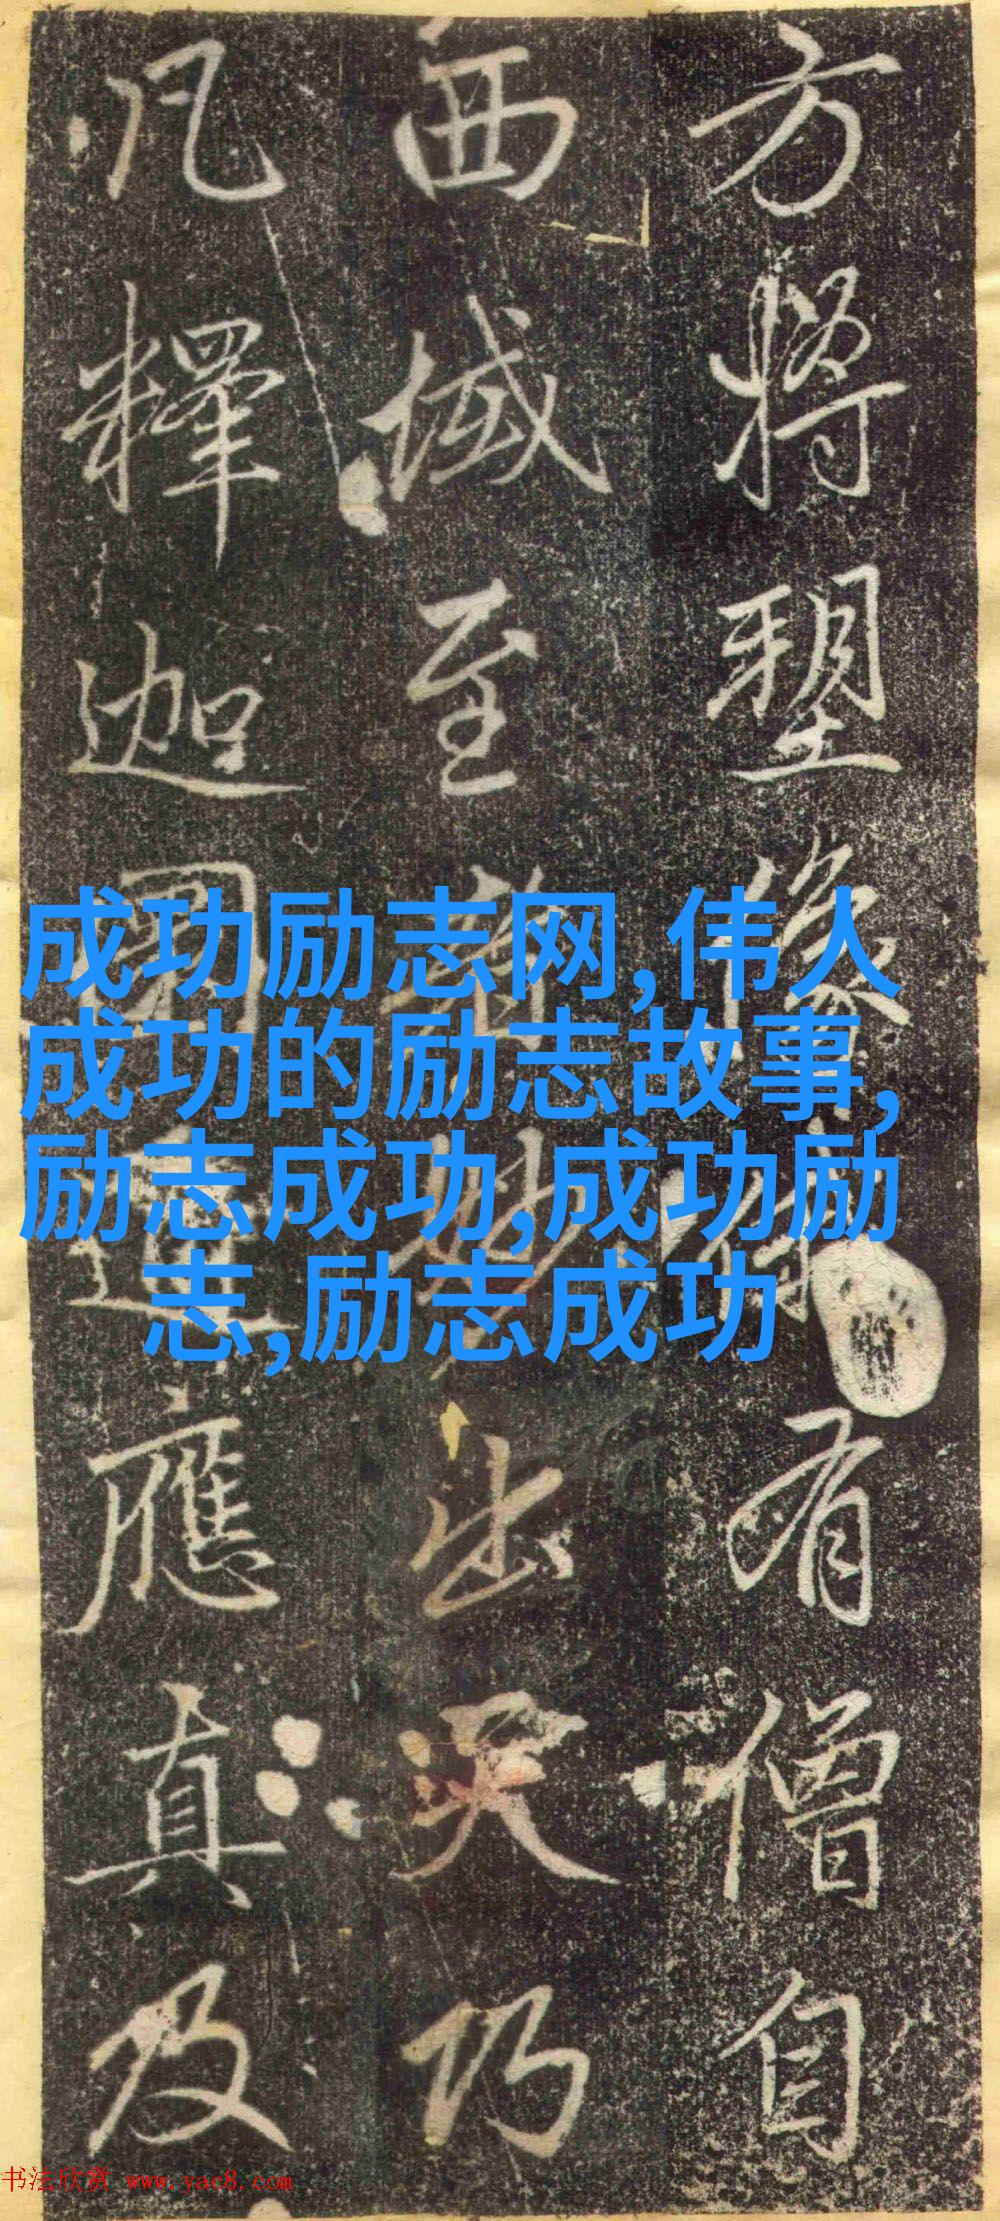 方將塑像有僧自
西域至妙出天巧
凡釋迦應真及
成功励志网,伟人
成功的励志故事,
励志成功,成功励
志,励志成功
书法欣赏 www.yac8.com